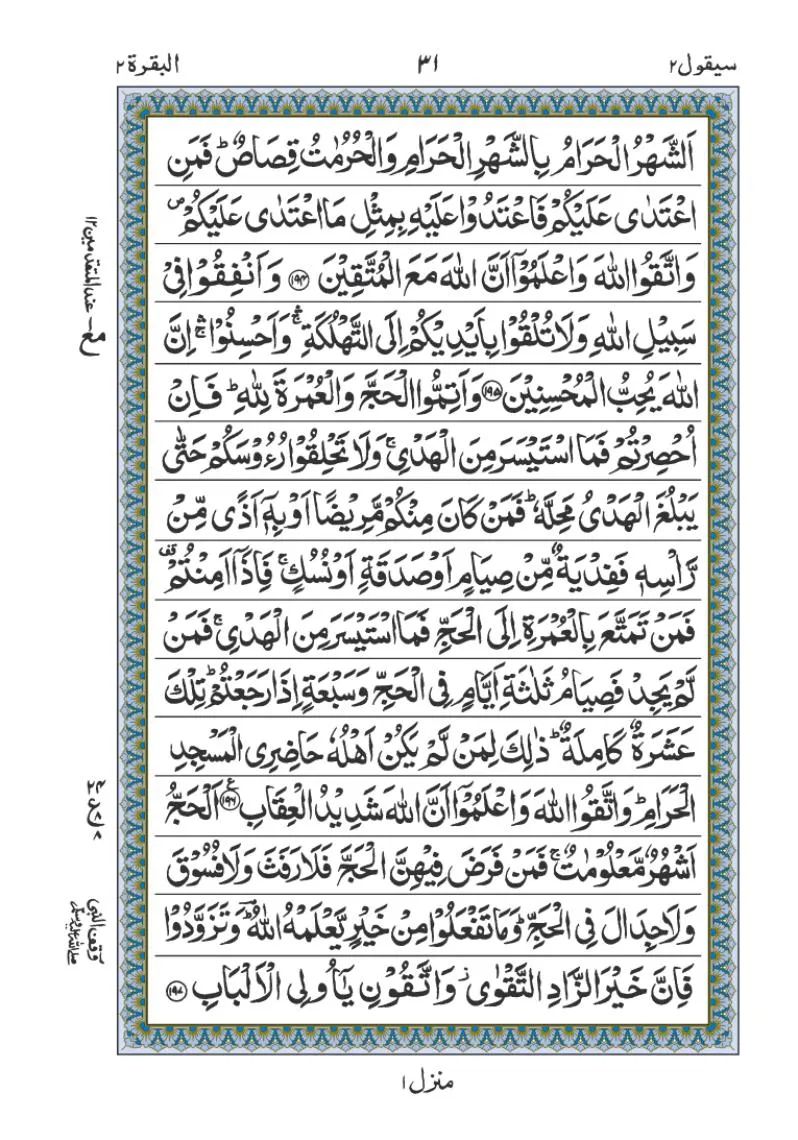 سيقول٢ ٣١ البقرة٢
اَلشَّهْرُ الْحَرَامُ بِالشَّهْرِ الْحَرَامِ وَالْحُرُمٰتُ قِصَاصٌ ؕ فَمَنِ
اعْتَدٰى عَلَيْكُمْ فَاعْتَدُوْا عَلَيْهِ بِمِثْلِ مَا اعْتَدٰى عَلَيْكُمْ ۪
وَاتَّقُوا اللّٰهَ وَاعْلَمُوْۤا اَنَّ اللّٰهَ مَعَ الْمُتَّقِيْنَ ﴿۱۹۴﴾ وَاَنْفِقُوْا فِىْ
سَبِيْلِ اللّٰهِ وَلَا تُلْقُوْا بِاَيْدِيْكُمْ اِلَى التَّهْلُكَةِ ۛۚ وَاَحْسِنُوْا ۛۚ اِنَّ
اللّٰهَ يُحِبُّ الْمُحْسِنِيْنَ ﴿۱۹۵﴾ وَاَتِمُّوا الْحَجَّ وَالْعُمْرَةَ لِلّٰهِ ؕ فَاِنْ
اُحْصِرْتُمْ فَمَا اسْتَيْسَرَ مِنَ الْهَدْىِ ۚ وَلَا تَحْلِقُوْا رُءُوْسَكُمْ حَتّٰى
يَبْلُغَ الْهَدْىُ مَحِلَّهٗ ؕ فَمَنْ كَانَ مِنْكُمْ مَّرِيْضًا اَوْ بِهٖۤ اَذًى مِّنْ
رَّاْسِهٖ فَفِدْيَةٌ مِّنْ صِيَامٍ اَوْ صَدَقَةٍ اَوْ نُسُكٍ ۚ فَاِذَاۤ اَمِنْتُمْ ۥ
فَمَنْ تَمَتَّعَ بِالْعُمْرَةِ اِلَى الْحَجِّ فَمَا اسْتَيْسَرَ مِنَ الْهَدْىِ ۚ فَمَنْ
لَّمْ يَجِدْ فَصِيَامُ ثَلٰثَةِ اَيَّامٍ فِى الْحَجِّ وَسَبْعَةٍ اِذَا رَجَعْتُمْ ؕ تِلْكَ
عَشَرَةٌ كَامِلَةٌ ؕ ذٰلِكَ لِمَنْ لَّمْ يَكُنْ اَهْلُهٗ حَاضِرِى الْمَسْجِدِ
الْحَرَامِ ؕ وَاتَّقُوا اللّٰهَ وَاعْلَمُوْۤا اَنَّ اللّٰهَ شَدِيْدُ الْعِقَابِ ﴿۱۹۶﴾ اَلْحَجُّ
اَشْهُرٌ مَّعْلُوْمٰتٌ ۚ فَمَنْ فَرَضَ فِيْهِنَّ الْحَجَّ فَلَا رَفَثَ وَلَا فُسُوْقَ
وَلَا جِدَالَ فِى الْحَجِّ ؕ وَمَا تَفْعَلُوْا مِنْ خَيْرٍ يَّعْلَمْهُ اللّٰهُ ؕ وَتَزَوَّدُوْا
فَاِنَّ خَيْرَ الزَّادِ التَّقْوٰى ۫ وَاتَّقُوْنِ يٰۤاُولِى الْاَلْبَابِ ﴿۱۹۷﴾
منزل١